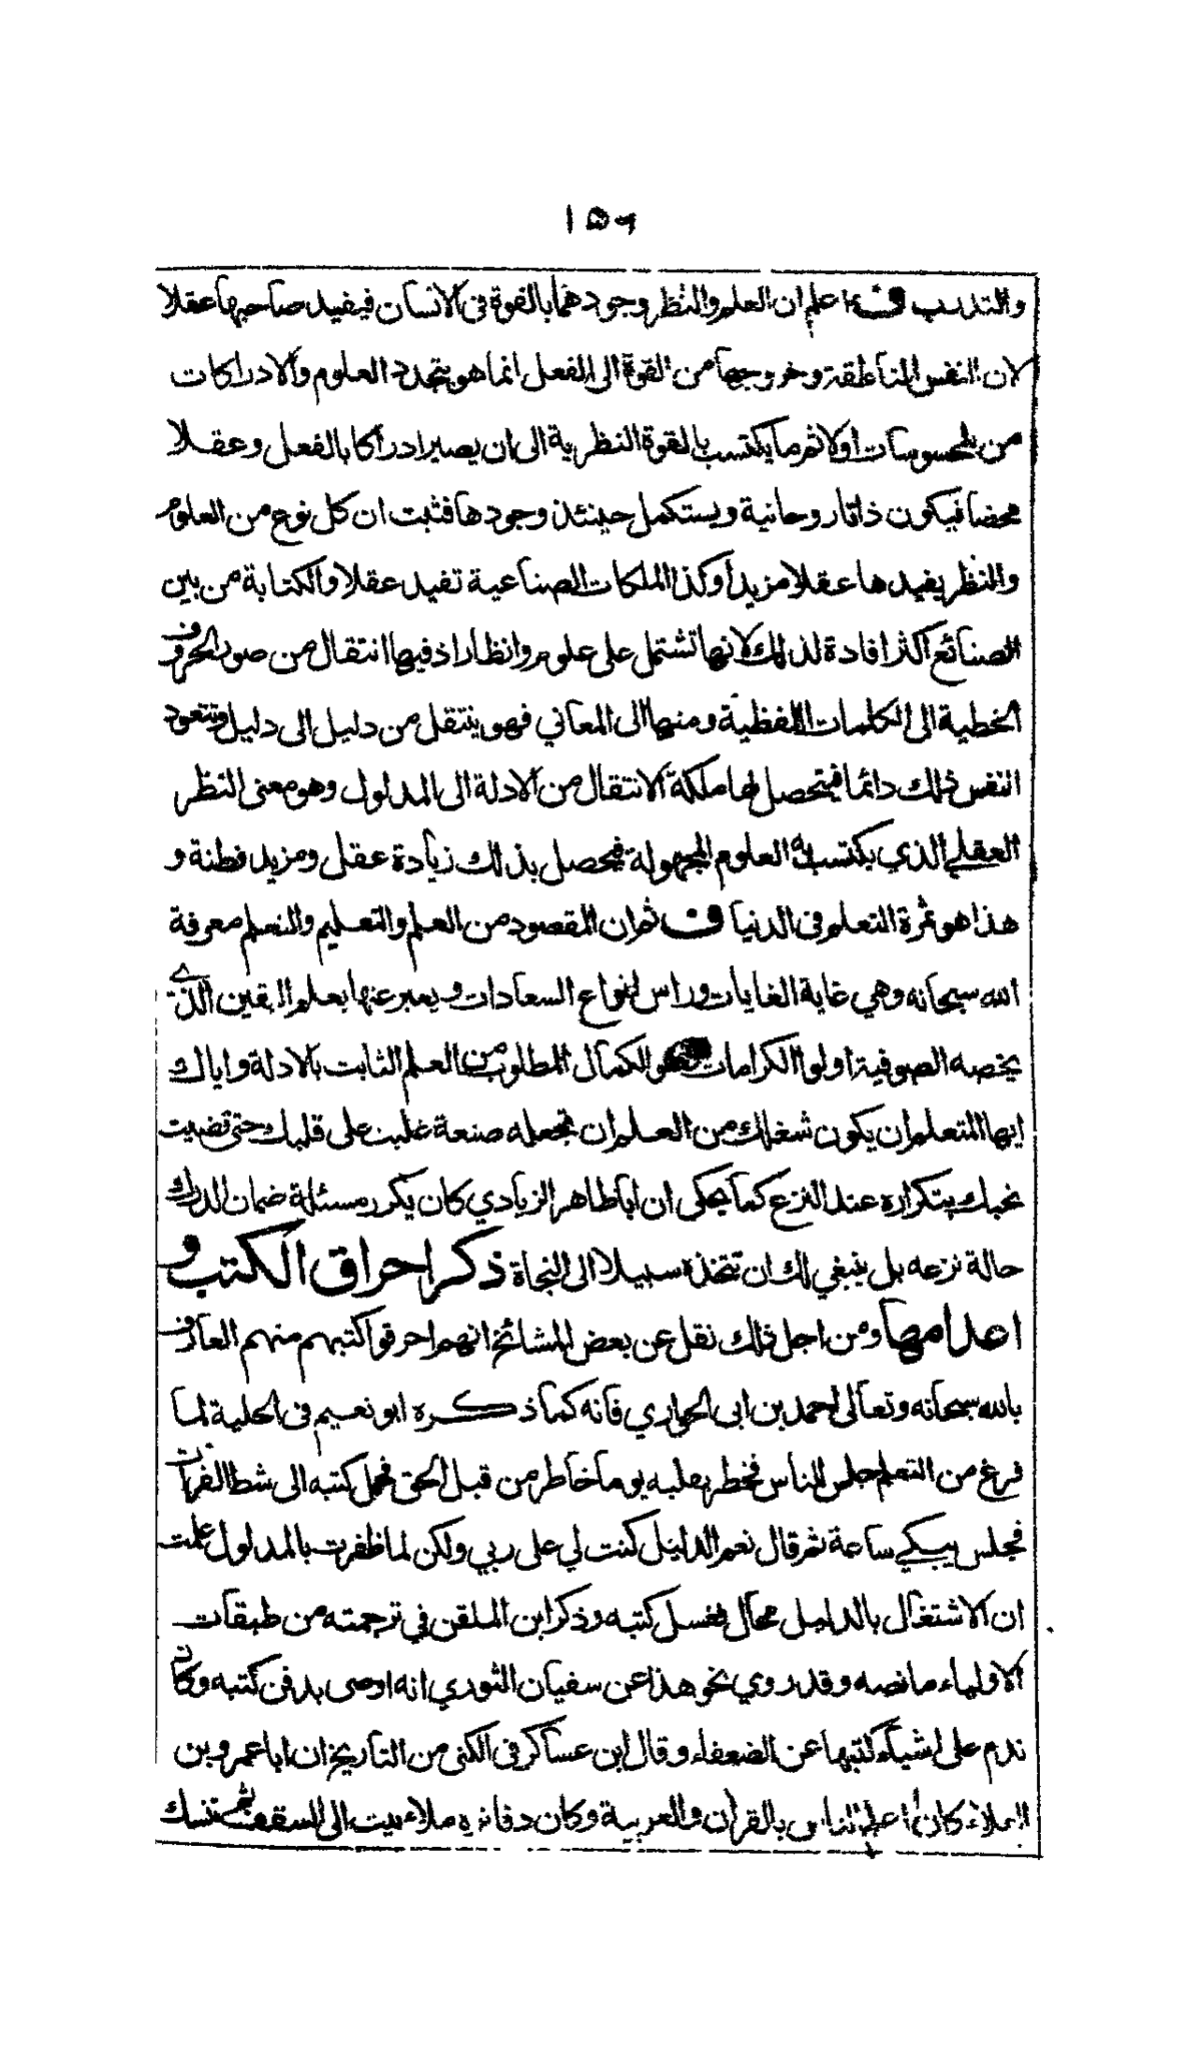 ١٥٦
والتدرب ف اعلم ان العلم والنظر وجودهما بالقوة فى الانسان فيفيد صاحبها عقلا
لان النفس الناطقة وخروجها من القوة الى الفعل انما هو بتجدد العلوم والادراكات
من المحسوسات اولا ثم ما يكتسب بالقوة النظرية الى ان يصير ادراكا بالفعل وعقلا
محضا فيكون ذاتا روحانية ويستكمل حينئذ وجودها فثبت ان كل نوع من العلوم
والنظر يفيدها عقلا مزيدا وكذا الملكات الصناعية تفيد عقلا والكتابة من بين
الصنائع اكثر افادة لذلك لانها تشتمل على علوم وانظار اذ فيها انتقال من صور الحروف
الخطية الى الكلمات اللفظية ومنها الى المعاني فهو ينتقل من دليل الى دليل وتتعود
النفس ذلك دائما فيتحصل لها ملكة الانتقال من الادلة الى المدلول وهو معنى النظر
العقلي الذي يكتسب به العلوم المجهولة فيحصل بذلك زيادة عقل ومزيد فطنة و
هذا هو ثمرة التعلم فى الدنيا ف ثم ان المقصود من العلم والتعليم والتعلم معرفة
الله سبحانه وهي غاية الغايات وراس انواع السعادات ويعبر عنها بعلم اليقين الذي
يخصه الصوفية اولوا الكرامات وهو الكمال المطلوب من العلم الثابت بالادلة واياك
ايها المتعلم ان يكون شغلك من العلم ان تجعله صنعة غلبت على قلبك وحتى قضيت
نحبك بتكراره عند النزع كما يحكى ان اباطاهر الزيادي كان يكرر مسئلة ضمان الدرك
حالة نزعه بل ينبغي لك ان تتخذه سبيلا الى النجاة ذكر احراق الكتب و
اعدامها ومن اجل ذلك نقل عن بعض المشائخ انهم احرقوا كتبهم منهم العارف
بالله سبحانه وتعالى احمد بن ابى الحواري فانه كما ذكره ابو نعيم فى الحلية لما
فرغ من التعلم جلس للناس فخطر بقلبه يوما خاطر من قبل الحق فحمل كتبه الى شط الفرات
فجلس يبكي ساعة ثم قال نعم الدليل كنت لي على ربي ولكن لما ظفرت بالمدلول علمت
ان الاشتغال بالدليل محال فغسل كتبه وذكر ابن الملقن في ترجمته من طبقات
الاولياء ما نصه وقد روي نحو هذا عن سفيان الثوري انه اوصى بدفن كتبه وكان
ندم على اشياء كتبها عن الضعفاء وقال ابن عساكر فى الكنى من التاريخ ان ابا عمرو بن
العلاء كان اعلم الناس بالقرآن والعربية وكان دفاتره ملاء بيت الى السقف ثم تنسك